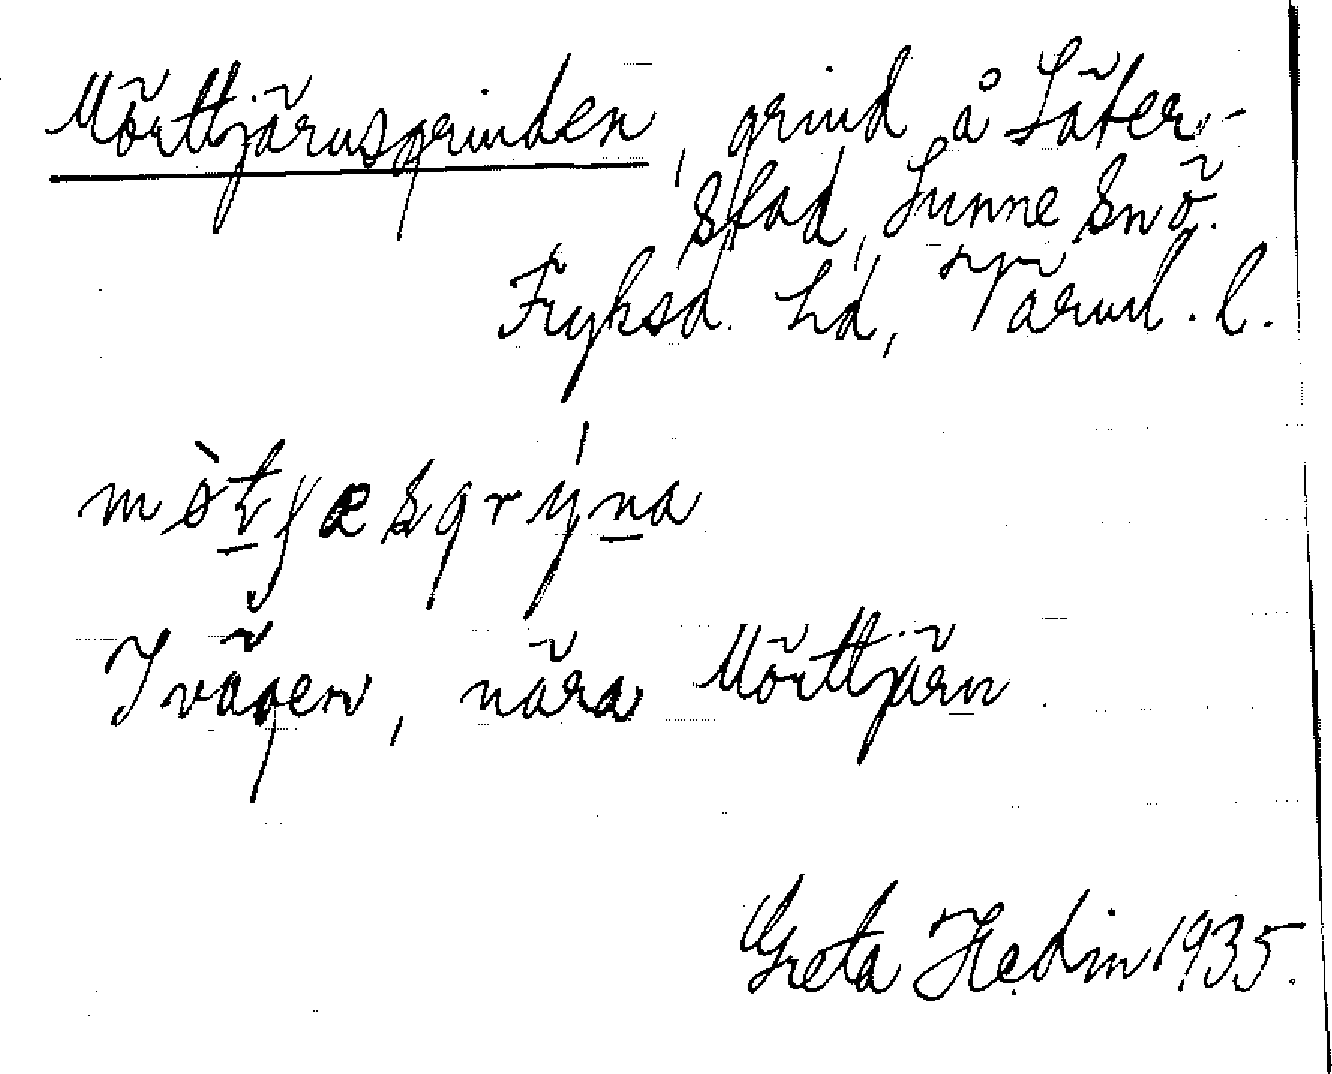 Mörttjärnsgrinden, grind å Säter-
stad, Sunne snö.
Fryksd. hd, Värml. l.
I vägen, nära Mörttjärn.
Greta Hedin 1935.